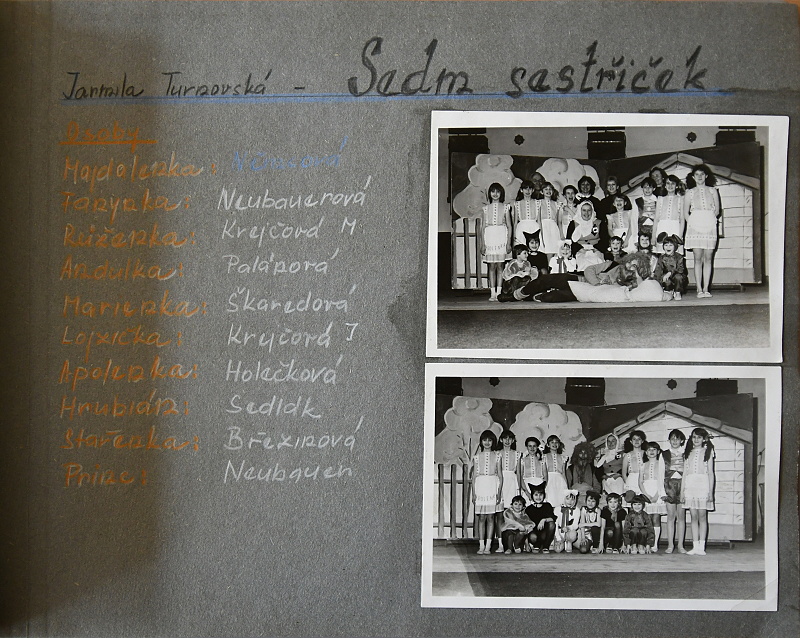 Jarmila Turnovská – Sedm sestřiček
Osoby
Majdalenka: Němcová
Tonynka: Neubauerová
Růženka: Krejčová M
Andulka: Palánová
Marienka: Škaredová
Lojzička: Krejčová J
Apolenka: Holečková
Hrubián: Sedlák
Stařenka: Březinová
Princ: Neubauer